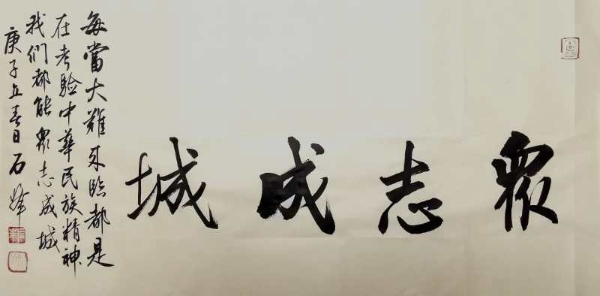 眾志成城
每當大難來臨都是
在考驗中華民族精神
我们都能眾志成城
庚子立春日石峰